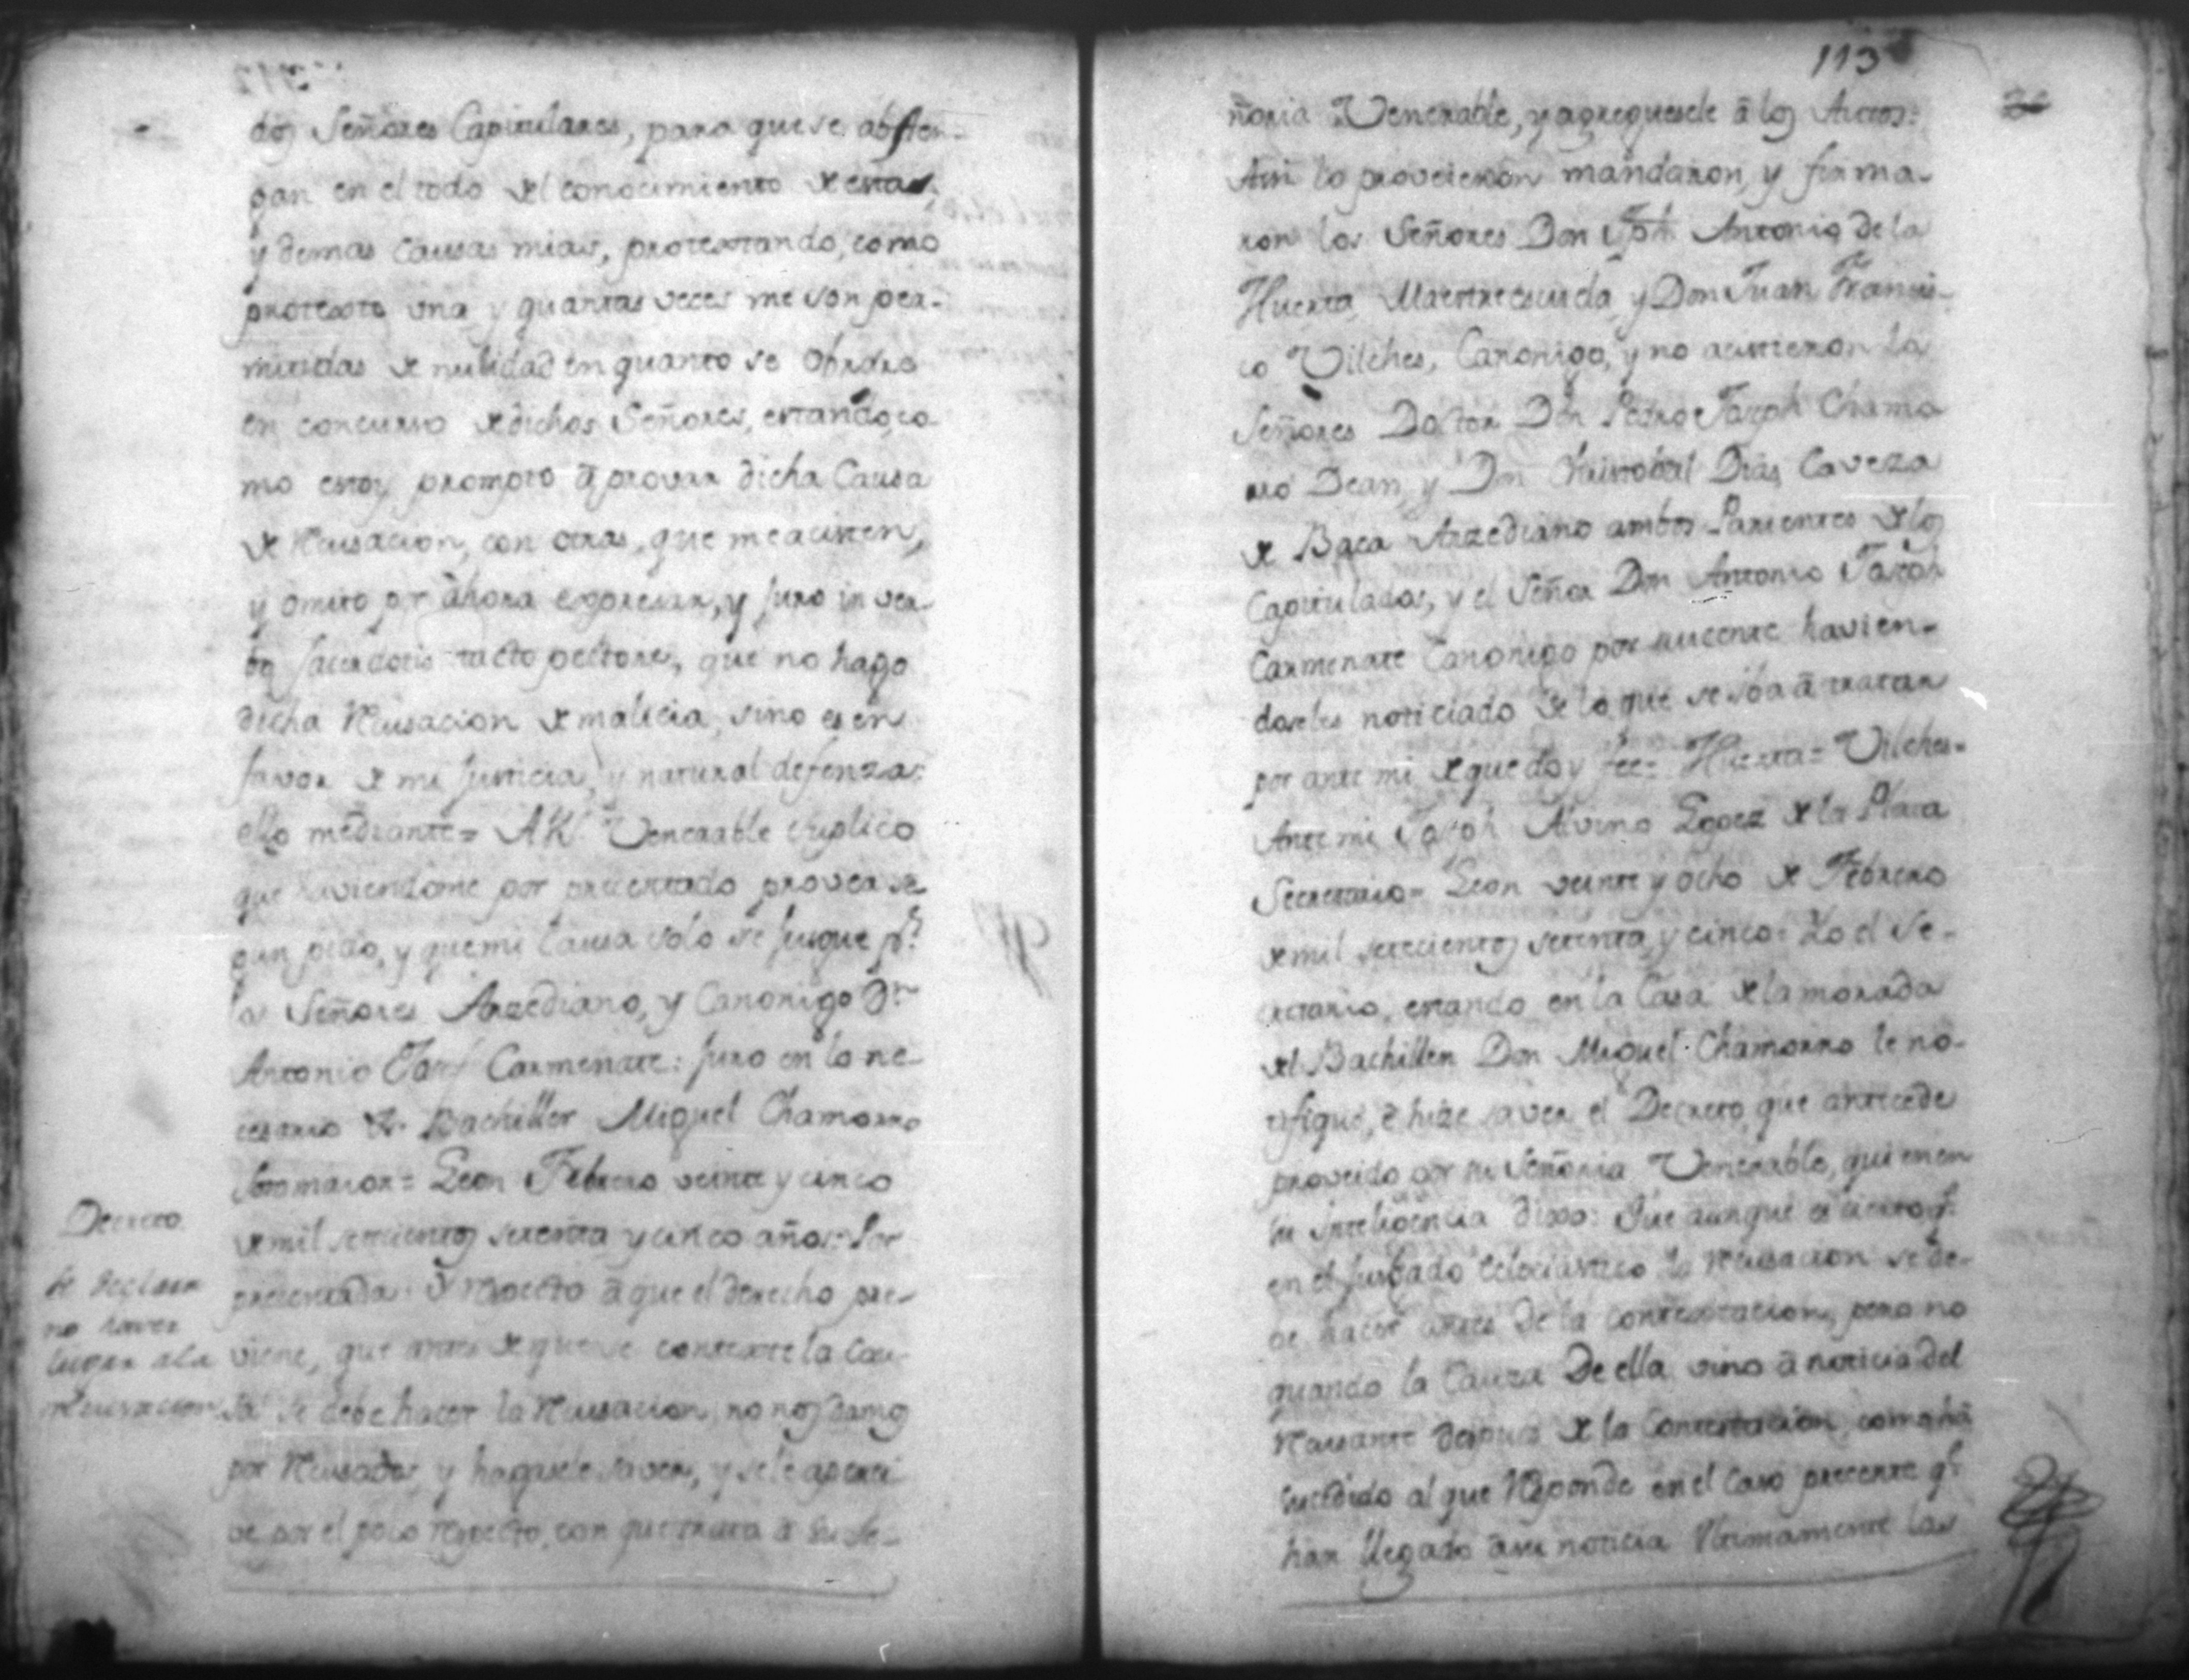 dos Señores Capitulares, para que se absten-
gan en el todo del conocimiento de estas,
y demas Causas mias, protextando, como
protexto una y quantas veces me son per-
mitidas de nulidad en quanto se obrare
en concurso de dichos Señores, estando, co-
mo estoy prompto â provar dicha Causa
de Recusacion, con otras, que me acisten,
y omito pr ahora expresar, y juro in ver-
bo sacerdotis tacto pectore, que no hago
dicha Recusacion de malicia, sino es en
favor de mi Justicia, y natural defenza:
ello mediante=  Venerable suplico
que haviendome por precentado provea se
gun pido, y que mi Causa solo se jusgue pr.
los Señores Arzediano, y Canonigo Dn
Antonio Josef Carmenate: juro en lo ne-
cesario &. Bachiller Miguel Chamorro
Sotomaior= Leon Febrero veinte y cinco
Decreto
de mil setecientos setenta y cinco años: Por
Se declara
no haver
lugar a la
recusacion
precentada: Y Respecto â que el derecho pre-
viene, que antes de que se conteste la Cau-
sa se debe hacer la Recusacion, no nos damos
por Recusados, y hagasele saver, y se le aperci
ve por el poco respecto, con que trata â su Se-
113
ñoria Venerable, y agreguesele â los Autos:
Asi lo proveieron mandaron, y firma-
ron los Señores Don Jph. Antonio de la
Huerta Maestrescuela y Don Juan Francis-
co Vilches, Canonigo, y no acistieron los
Señores Doctor Don Pedro Joseph Chamo
rro Dean, y Don Christobal Dias Caveza
de Baca Arzediano ambos Parientes de los
Capitulados, y el Señor Don Antonio Joseph
Carmenate Canonigo por aucente havien-
doseles noticiado de lo que se iba â tratar
por ante mi de que doy fee= Huerta= Vilches=
Ante mi Joseph Alvino Lopez de la Plata
Secretario= Leon veinte y ocho de Febrero
de mil setecientos setenta y cinco: Yo el Se-
cretario, estando en la Casa de la morada
del Bachiller Don Miguel Chamorro le no-
tifiqué, é hize saver el Decreto, que antecede
proveido por su Señoria Venerable, quien en
su inteligencia dixo: Que aunque es cierto q.
en el Jusgado eclesiastico la Recusacion se de-
be hacer antes de la contestacion, pero no
quando la Cauza De ella vino â noticia del
Recusante despues de la Contestacion, como hâ
sucedido al que Responde en el caso precente q.
han llegado â su noticia Ultimamente las